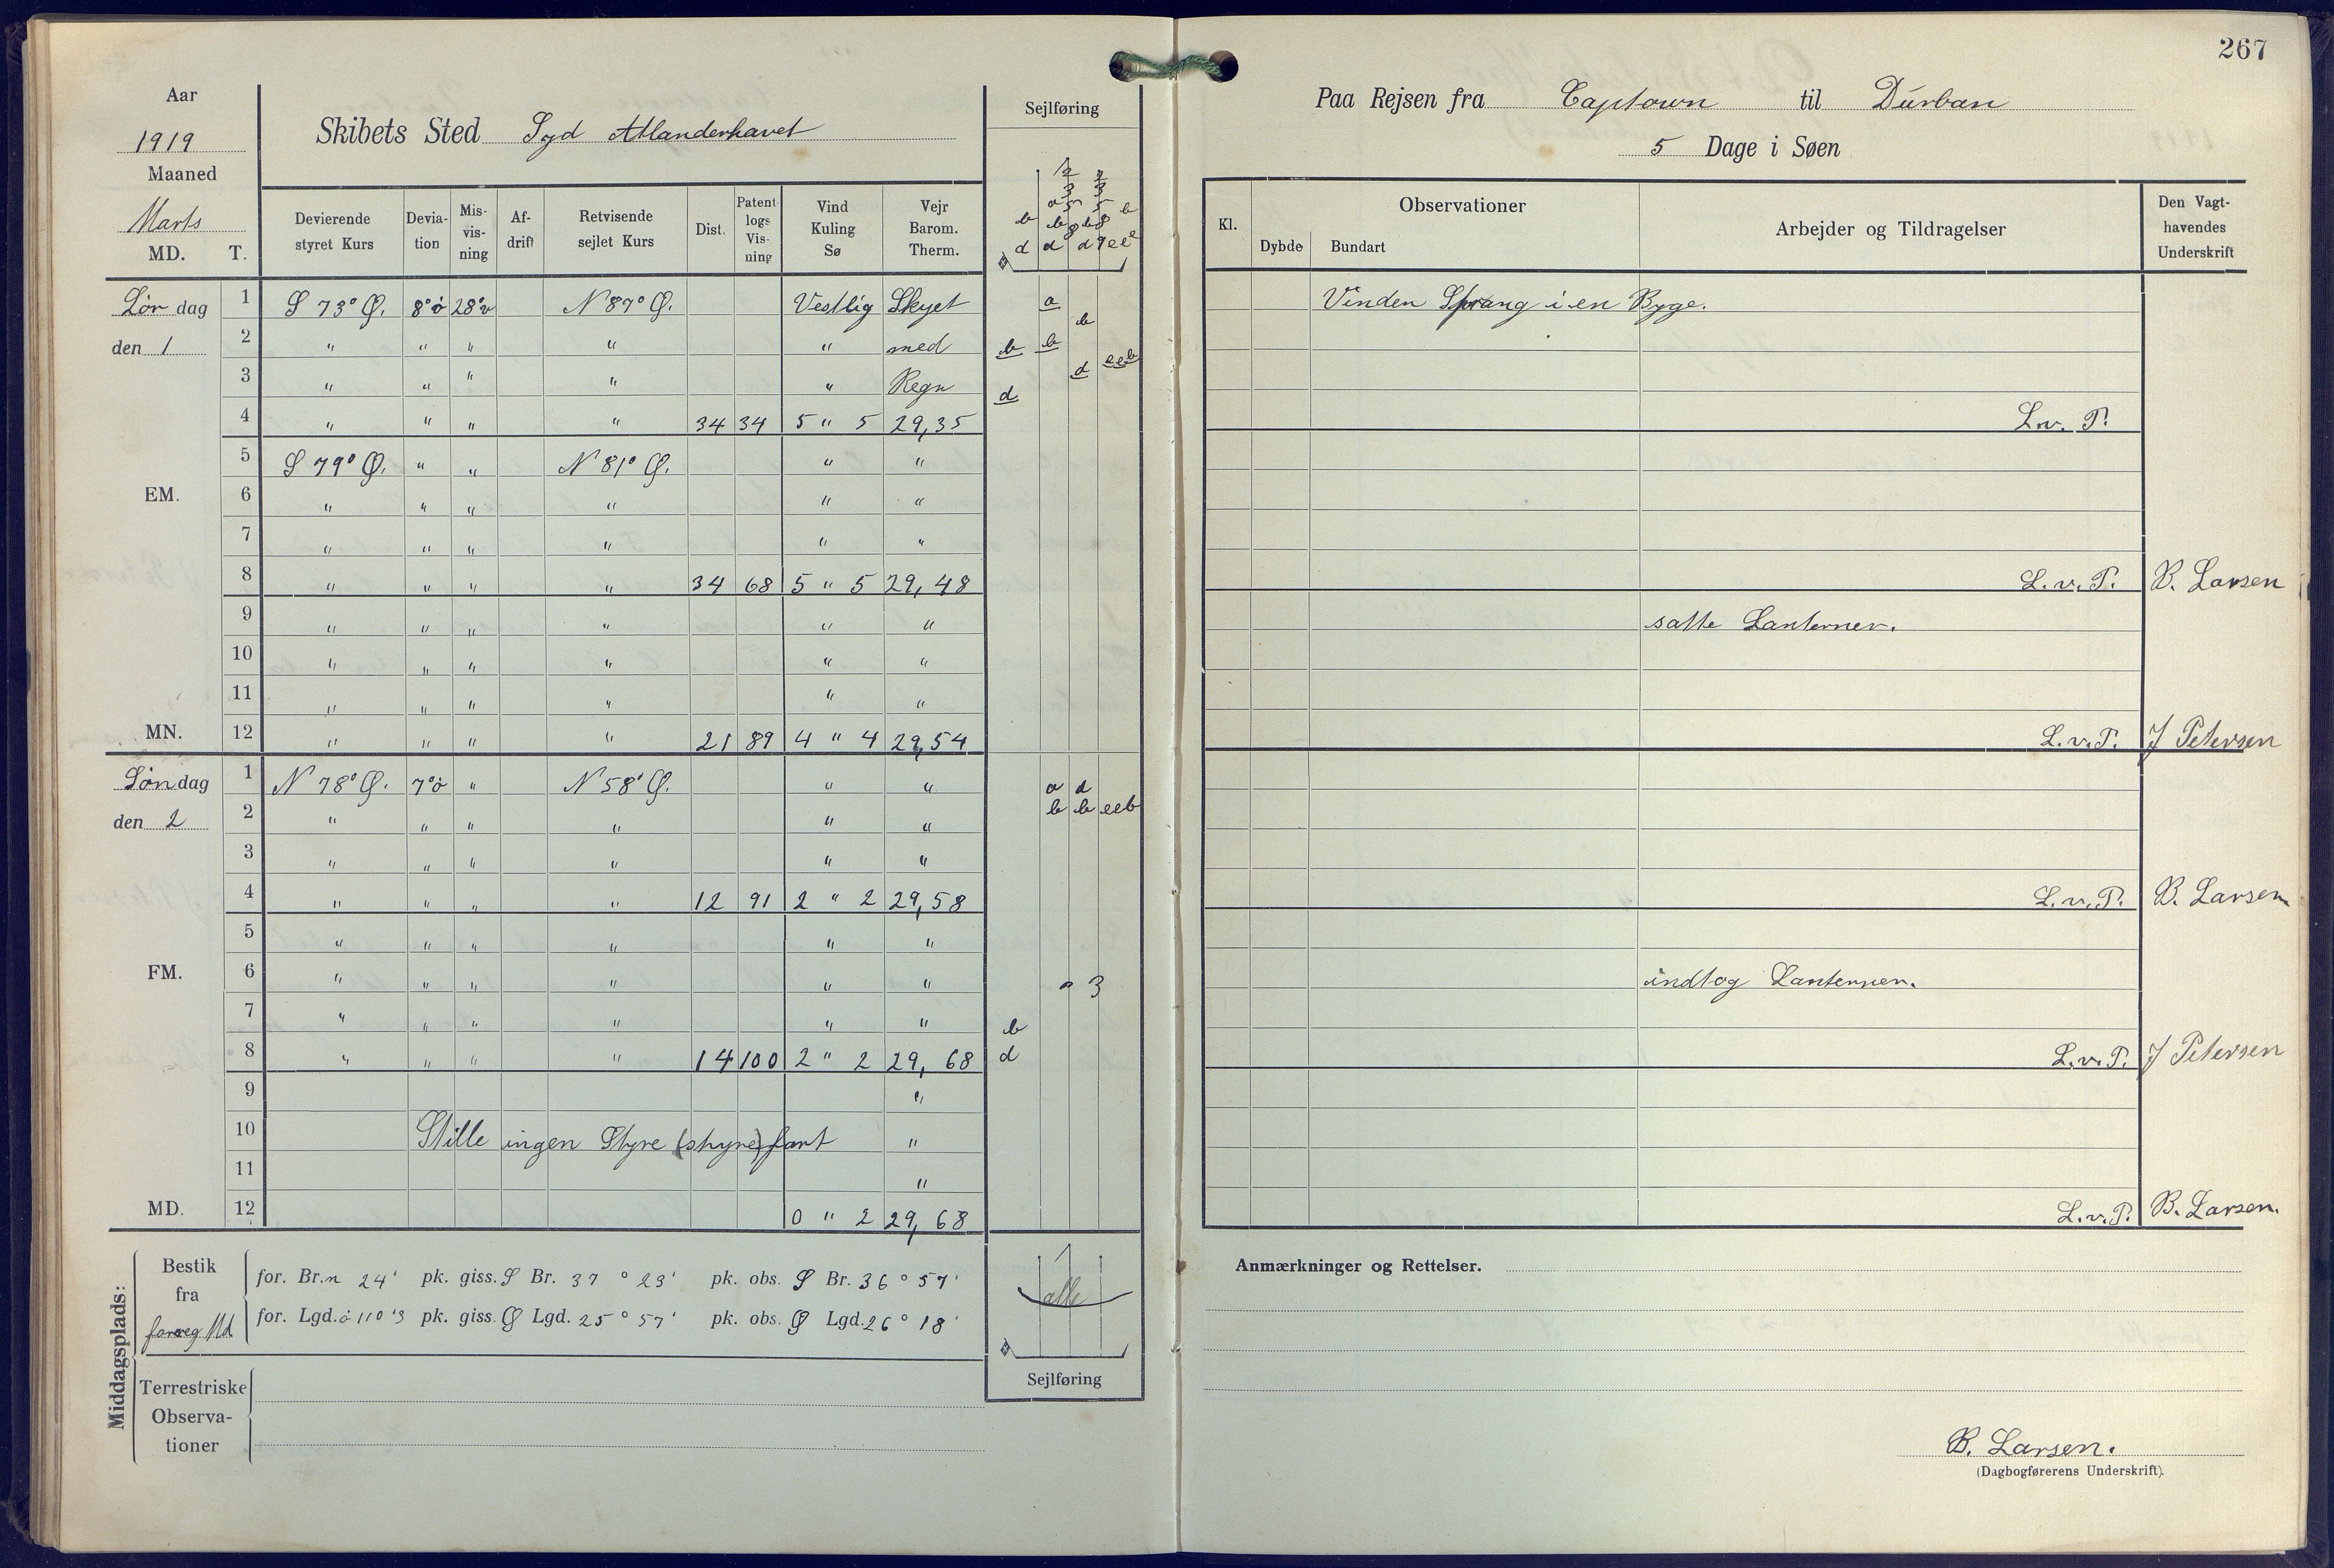 267
Aar
1919
Maaned
Marts
MD. T.
Skibets Sted Syd Atlanderhavet
Sejlføring
Paa Rejsen fra Captown til Durban
5 Dage i Søen
Devierende styret Kurs
Deviation
Misvisning
Afdrift
Retvisende sejlet Kurs
Dist.
Patent logs Visning
Vind Kuling Sø
Vejr Barom. Therm.
Kl.
Observationer
Dybde Bundart
Arbejder og Tildragelser
Den Vagthavendes Underskrift
Lørdag 1 S 73° Ø. 8°ö 28°v N 87° Ø. Vestlig Skyet a Vinden Sprang i en Byge.
den 1 2 " " " " " med b b b
3 " " " " " Regn d d eeb
4 " " " " 34 34 5 " 5 29,35 L.v. P.
5 S 79° Ø. " " N 81° Ø. " "
EM. 6 " " " " " "
7 " " " " " "
8 " " " " 34 68 5 " 5 29,48 L.v.P. B. Larsen
9 " " " " " " satte Lanterner.
10 " " " " " "
11 " " " " "
MN. 12 " " " " 21 89 4 " 4 29,54 L.v.P. J Petersen
Søndag 1 N 78° Ø. 7°ö " N 58° Ø. " " a d
den 2 2 " " " " " " b b eeb
3 " " " " " "
4 " " " " 12 91 2 " 2 29,58 L.v.P. B. Larsen
5 " " " " " "
FM. 6 " " " " " " 3 indtog Lanterner.
7 " " " " " " b
8 " " " " 14 100 2 " 2 29,68 d L.v.P. J Petersen
9 "
10 Stille ingen Styre (styre) fart "
11 "
MD. 12 0 " 2 29,68 L.v.P. B. Larsen.
Middagsplads:
Bestik fra forreg Md
for. Br. n 24' pk. giss. S Br. 37° 23' pk. obs. S Br. 36° 57'
for. Lgd. ö 110'3 pk. giss. Ø Lgd. 25° 57' pk. obs. Ø Lgd. 26° 18'
alle
Sejlføring
Terrestriske Observationer
Anmærkninger og Rettelser.
B. Larsen.
(Dagbogførerens Underskrift).